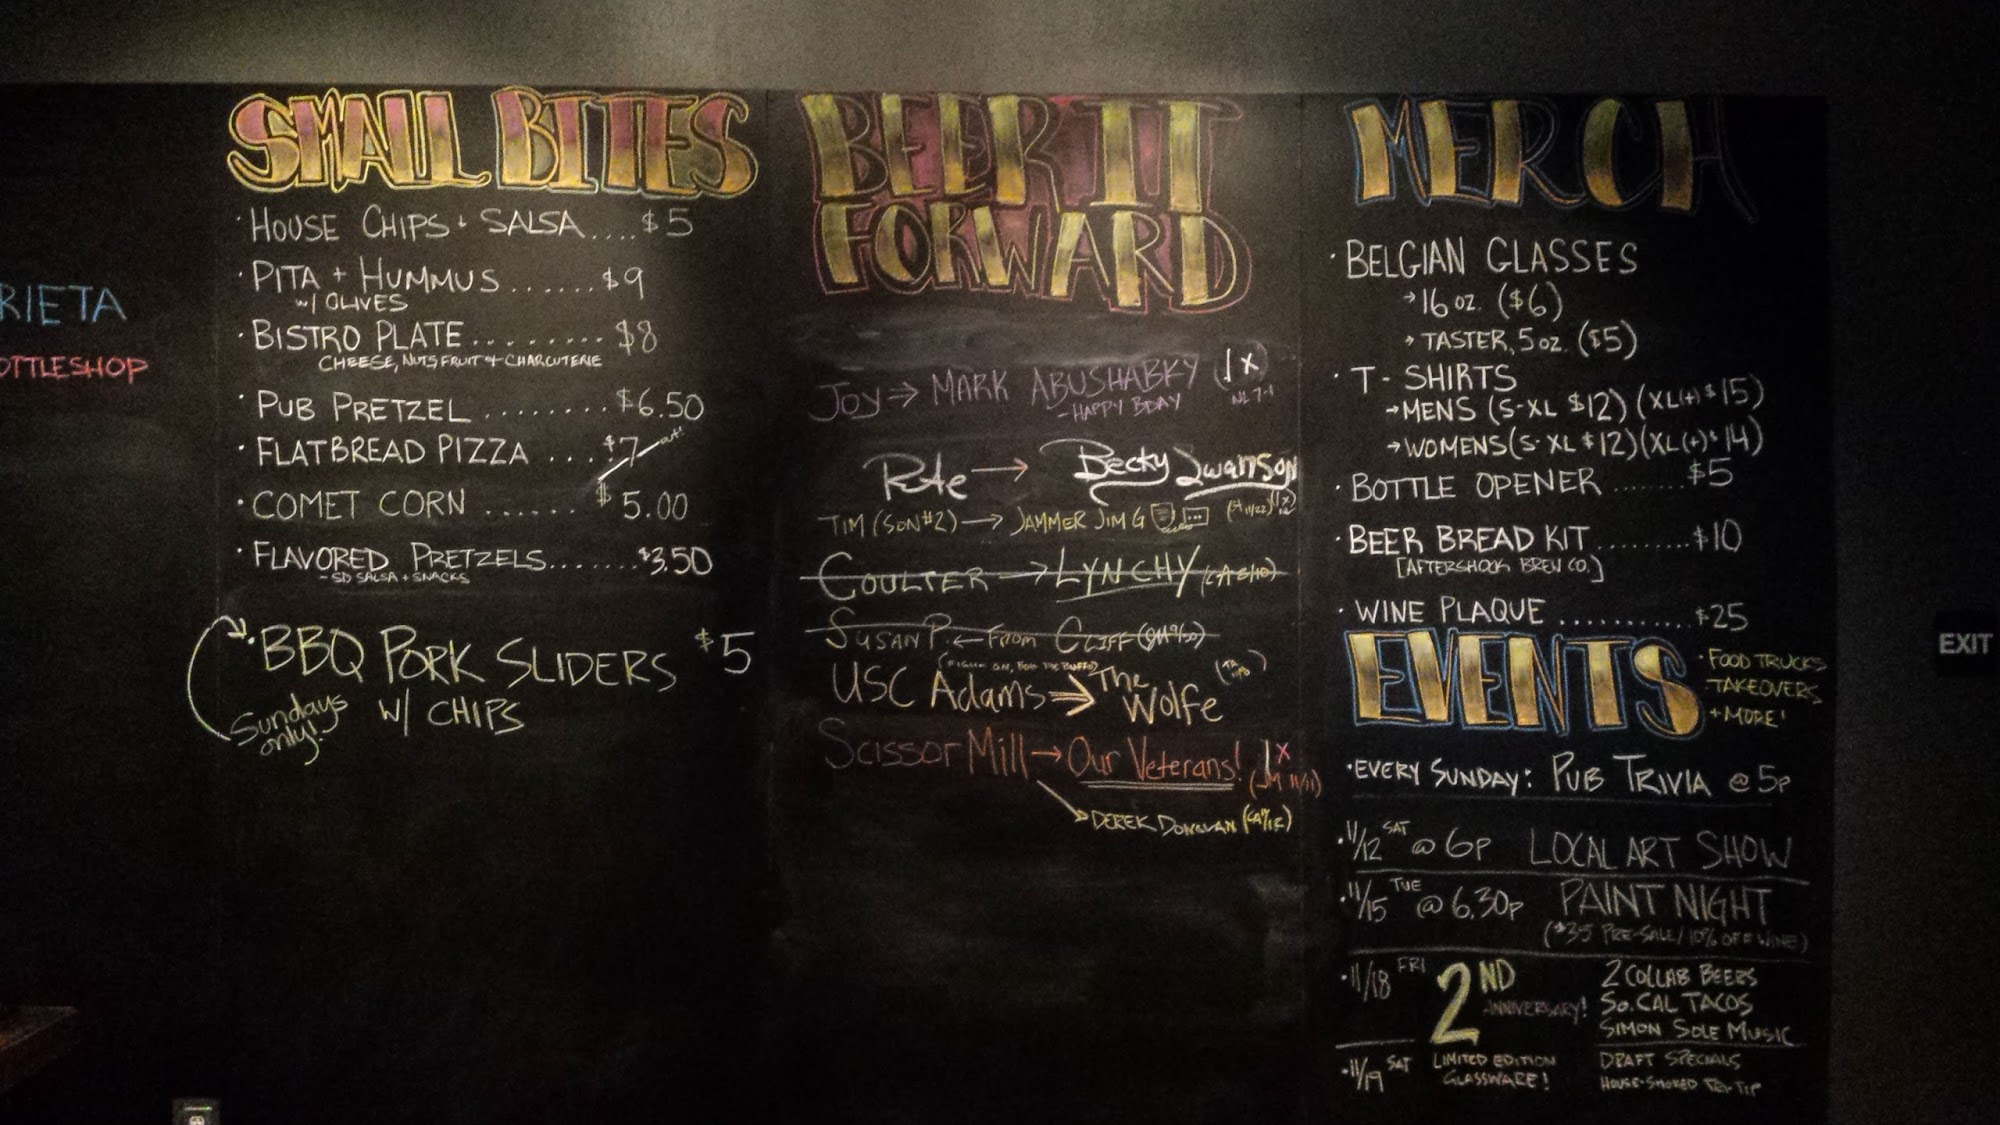 RIETA
OTTLESHOP
SMALL BITES
· HOUSE CHIPS + SALSA .... $5
· PITA + HUMMUS ...... $9
w/ OLIVES
· BISTRO PLATE ........ $8
CHEESE, NUTS, FRUIT + CHARCUTERIE
· PUB PRETZEL ........ $6.50
· FLATBREAD PIZZA .... $7 out!
· COMET CORN ...... $5.00
· FLAVORED PRETZELS....... $3.50
- SD SALSA + SNACKS
· BBQ PORK SLIDERS $5
W/ CHIPS
Sundays
only!
BEER IT
FORWARD
JOY → MARK ABUSHABKY (1x
- HAPPY BDAY
→ Becky Swanson
TIM (SON #2) → JAMMER JIM G
COULTER → LYNCHY
SUSAN P. ← FROM CLIFF
USC Adams → The Wolfe
Scissor Mill → Our Veterans! 1x
11/11)
→ DEREK DONOVAN
MERCH
· BELGIAN GLASSES
→ 16 oz. ($6)
→ TASTER, 5 oz. ($5)
· T-SHIRTS
→ MENS (S-XL $12) (XL(+) $15)
→ WOMENS (S-XL $12) (XL(+) $14)
· BOTTLE OPENER ....... $5
· BEER BREAD KIT ......... $10
[AFTERSHOCK BREW CO.]
· WINE PLAQUE ........... $25
EVENTS
· FOOD TRUCKS
TAKEOVERS
+ MORE!
· EVERY SUNDAY: PUB TRIVIA @ 5P
· 11/12 SAT @ 6P LOCAL ART SHOW
· 11/15 TUE @ 6.30P PAINT NIGHT
($35 PRE-SALE/10% OFF WINE)
· 11/18 FRI 2ND ANNIVERSARY!
2 COLLAB BEERS
SO. CAL TACOS
SIMON SOLE MUSIC
· 11/19 SAT LIMITED EDITION
GLASSWARE!
DRAFT SPECIALS
HOUSE-SMOKED TRI-TIP
EXIT